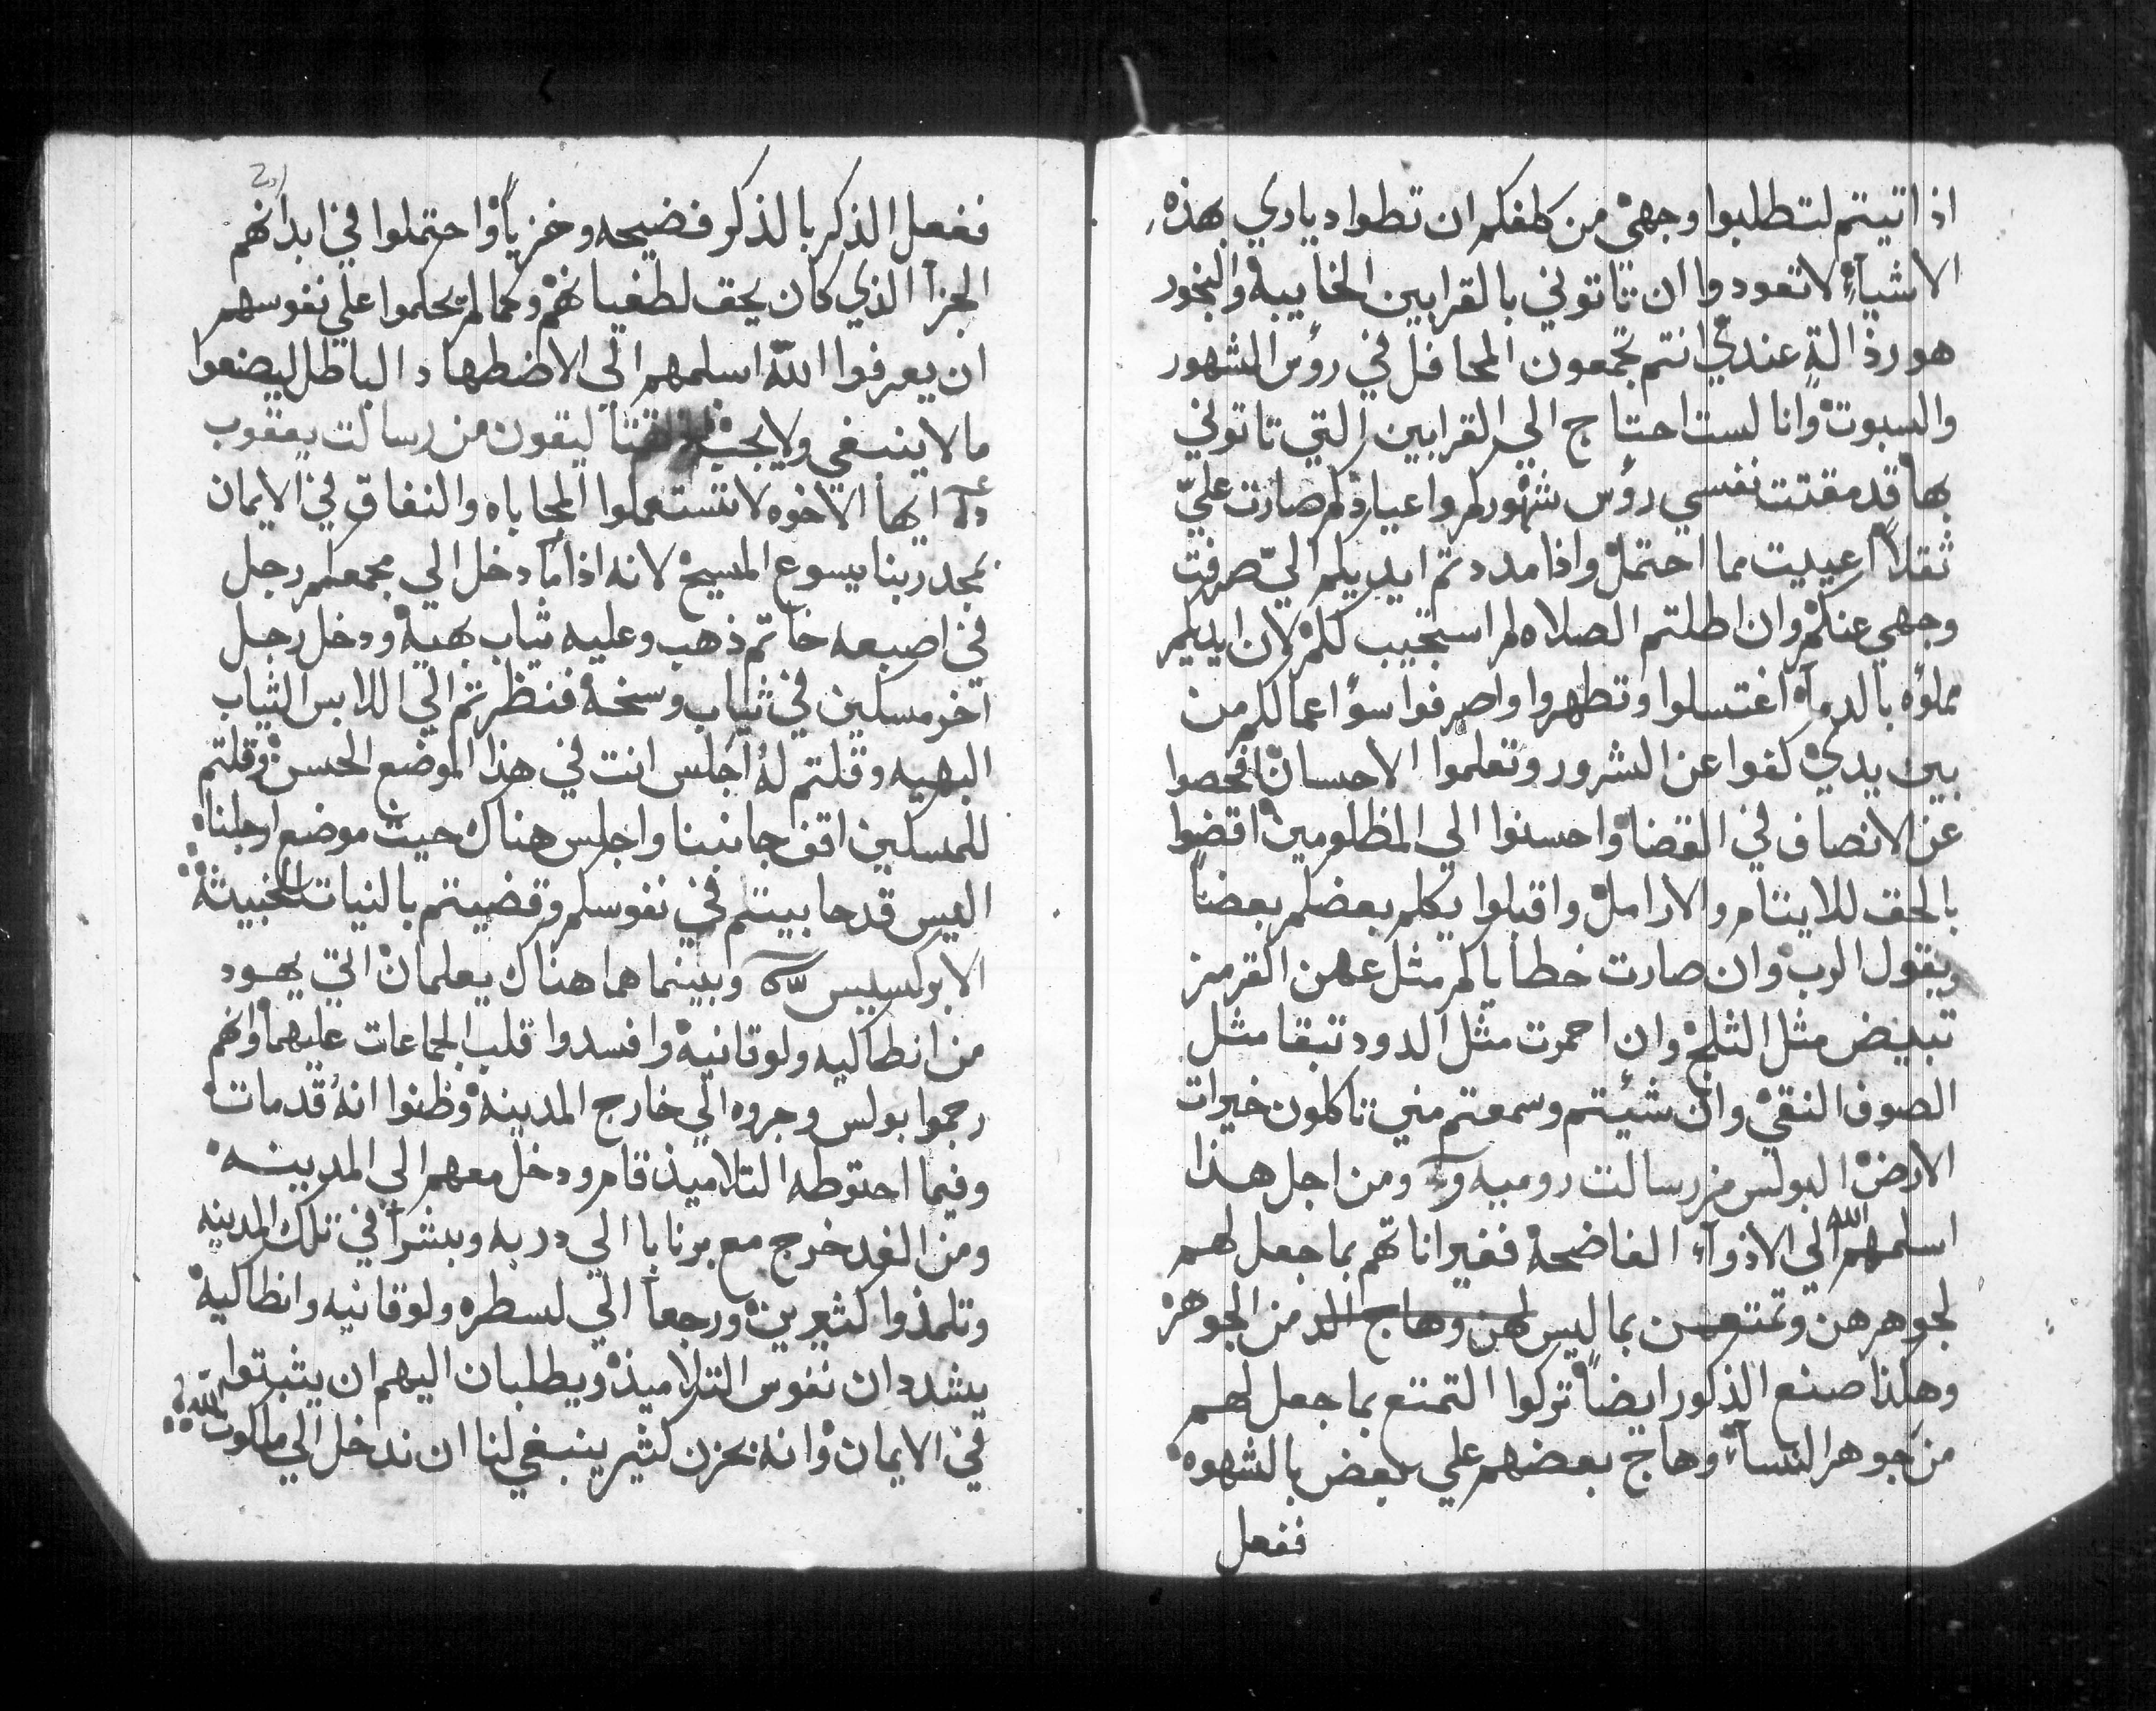 اذا اتيتم لتطلبوا وجهي من كلفكم ان تطوا دياري بهذه
الاشياء لا تعودوا ان تاتوني بالقرابين الخاييبة والبخور
هو رذالة عندي انتم تجمعون المحافل في روس الشهور
والسبوت وانا لست احتاج الي القرابين التي تاتوني
بها قد مقتت نفسي روس شهوركم واعيادكم صارت عليّ
ثقلاً اعييت مما احتمل واذا مددتم ايديكم اليّ صرفت
وجهي عنكم وان اطلتم الصلاه لم استجيب لكم لان ايديكم
مملؤه بالدماء اغتسلوا وتطهروا واصرفوا سؤ اعمالكم من
بين يديّ كفوا عن الشرور وتعلموا الاحسان افحصوا
عن الانصاف في القضا واحسنوا الي المظلومين اقضوا
بالحق للايتام والارامل واقبلوا يكلم بعضكم بعضاً
ويقول الرب وان صارت خطاياكم مثل عهن القرمز
تبيض مثل الثلج وان احمرت مثل الدود تنقا مثل
الصوف النقي وان شيتم وسمعتم مني تاكلون خيرات
الارض البولس من رسالت روميه ومن اجل هذا
اسلمهم الله الي الاذوآء الفاضحة فغير اناثهم بما جعل لهم
لجوهرهن وتمتعن بما ليس لهن وهاج الد من الجوهر
وهكذا صنع الذكور ايضاً تركوا التمتع بما جعل لهم
من جوهر النسآء وهاج بعضهم علي بعض بالشهوه
ففعل
201
ففعل الذكر بالذكر فضيحه وخزياً واحتملوا في ابدانهم
الجزآ الذي كان يحق لطغيانهم وكما لم يحكموا علي نفوسهم
ان يعرفوا اللّه اسلمهم الي الاضطهاد الباطل ليضعوا
ما لا ينبغي ولا يجب القتاليقون من رسالت يعقوب
ايها الاخوه لا تستعملوا المحاباه والنفاق في الايمان
بمجد ربنا يسوع المسيح لانه اذا ما دخل الي مجمعكم رجل
في اصبعه خاتم ذهب وعليه ثياب بهية ودخل رجل
آخر مسكين في ثياب وسخة فنظرتم الي اللابس الثياب
البهيه وقلتم له اجلس انت في هذا الموضع الحسن وقلتم
للمسكين اقف جانبنا واجلس هناك حيث موضع ارجلنا
اليس قد حابيتم في نفوسكم وقضيتم بالنيات الخبيثة
الابركسيس وبينما هما هناك يعلمان اتي يهود
من انطاكيه ولوقانيه وافسدوا قلب الجماعات عليهما وانهم
رجموا بولس وجروه الي خارج المدينه وظنوا انه قد مات
وفيما احتوطه التلاميذ قام ودخل معهم الي المدينه
ومن الغد خرج مع برنابا الي دربه وبشرا في تلك المدينه
وتلمذوا كثيرين ورجعا الي لسطره ولوقانيه وانطاكية
يشددان نفوس التلاميذ ويطلبان اليهم ان يثبتوا
في الايمان وانه بحزن كثير ينبغي لنا ان ندخل الي ملكوت اللّه